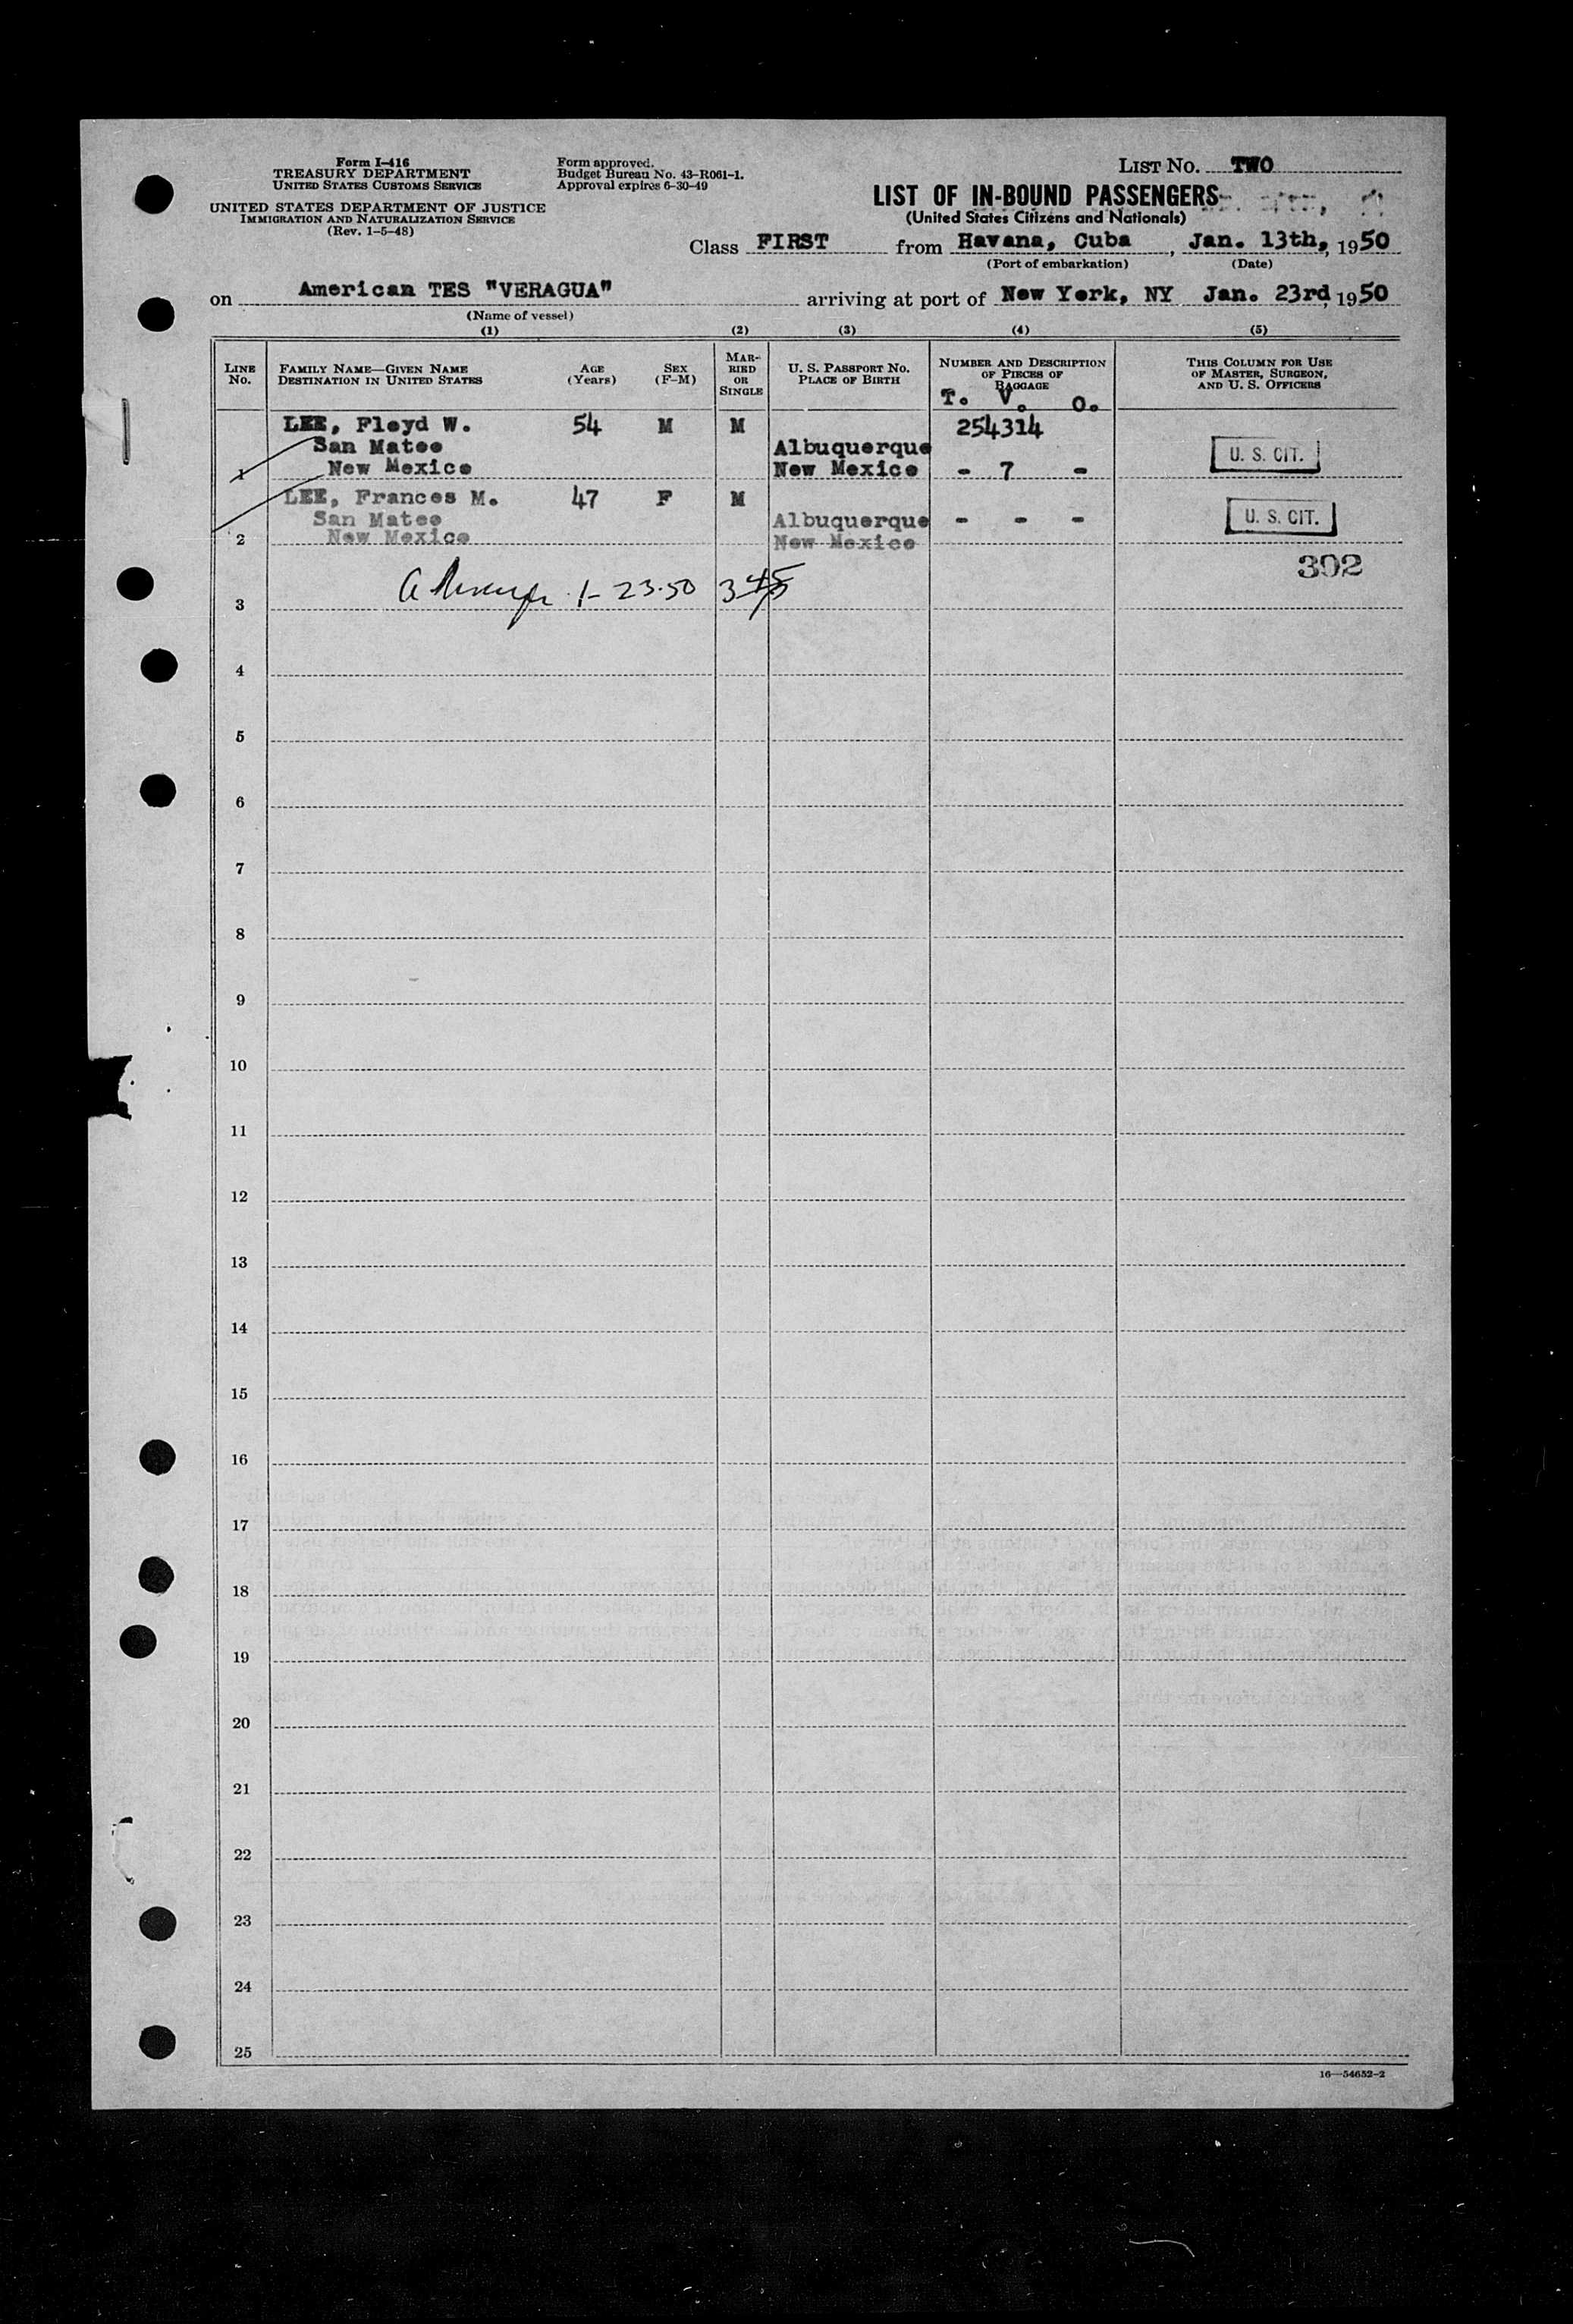 Form I-416
TREASURY DEPARTMENT
UNITED STATES CUSTOMS SERVICE
UNITED STATES DEPARTMENT OF JUSTICE
IMMIGRATION AND NATURALIZATION SERVICE
(Rev. 1-5-48)
Form approved.
Budget Bureau No. 43-R061-1.
Approval expires 6-30-49
LIST NO. TWO
LIST OF IN-BOUND PASSENGERS
(United States Citizens and Nationals)
Class FIRST from Havana, Cuba, Jan. 13th, 1950
(Port of embarkation) (Date)
on American TES "VERAGUA" arriving at port of New York, NY Jan. 23rd, 1950
(Name of vessel)
(1) (2) (3) (4) (5)
LINE NO.
FAMILY NAME—GIVEN NAME
DESTINATION IN UNITED STATES
AGE (Years)
SEX (F-M)
MARRIED OR SINGLE
U. S. PASSPORT NO.
PLACE OF BIRTH
NUMBER AND DESCRIPTION
OF PIECES OF
BAGGAGE
T. V. O.
THIS COLUMN FOR USE
OF MASTER, SURGEON,
AND U. S. OFFICERS
LEE, Floyd W. 54 M M 254314
San Mateo Albuquerque U. S. CIT.
1 New Mexico New Mexico - 7 -
LEE, Frances M. 47 F M
San Mateo Albuquerque - - - U. S. CIT.
2 New Mexico New Mexico
302
3 1-23-50
4
5
6
7
8
9
10
11
12
13
14
15
16
17
18
19
20
21
22
23
24
25
16—54652-2